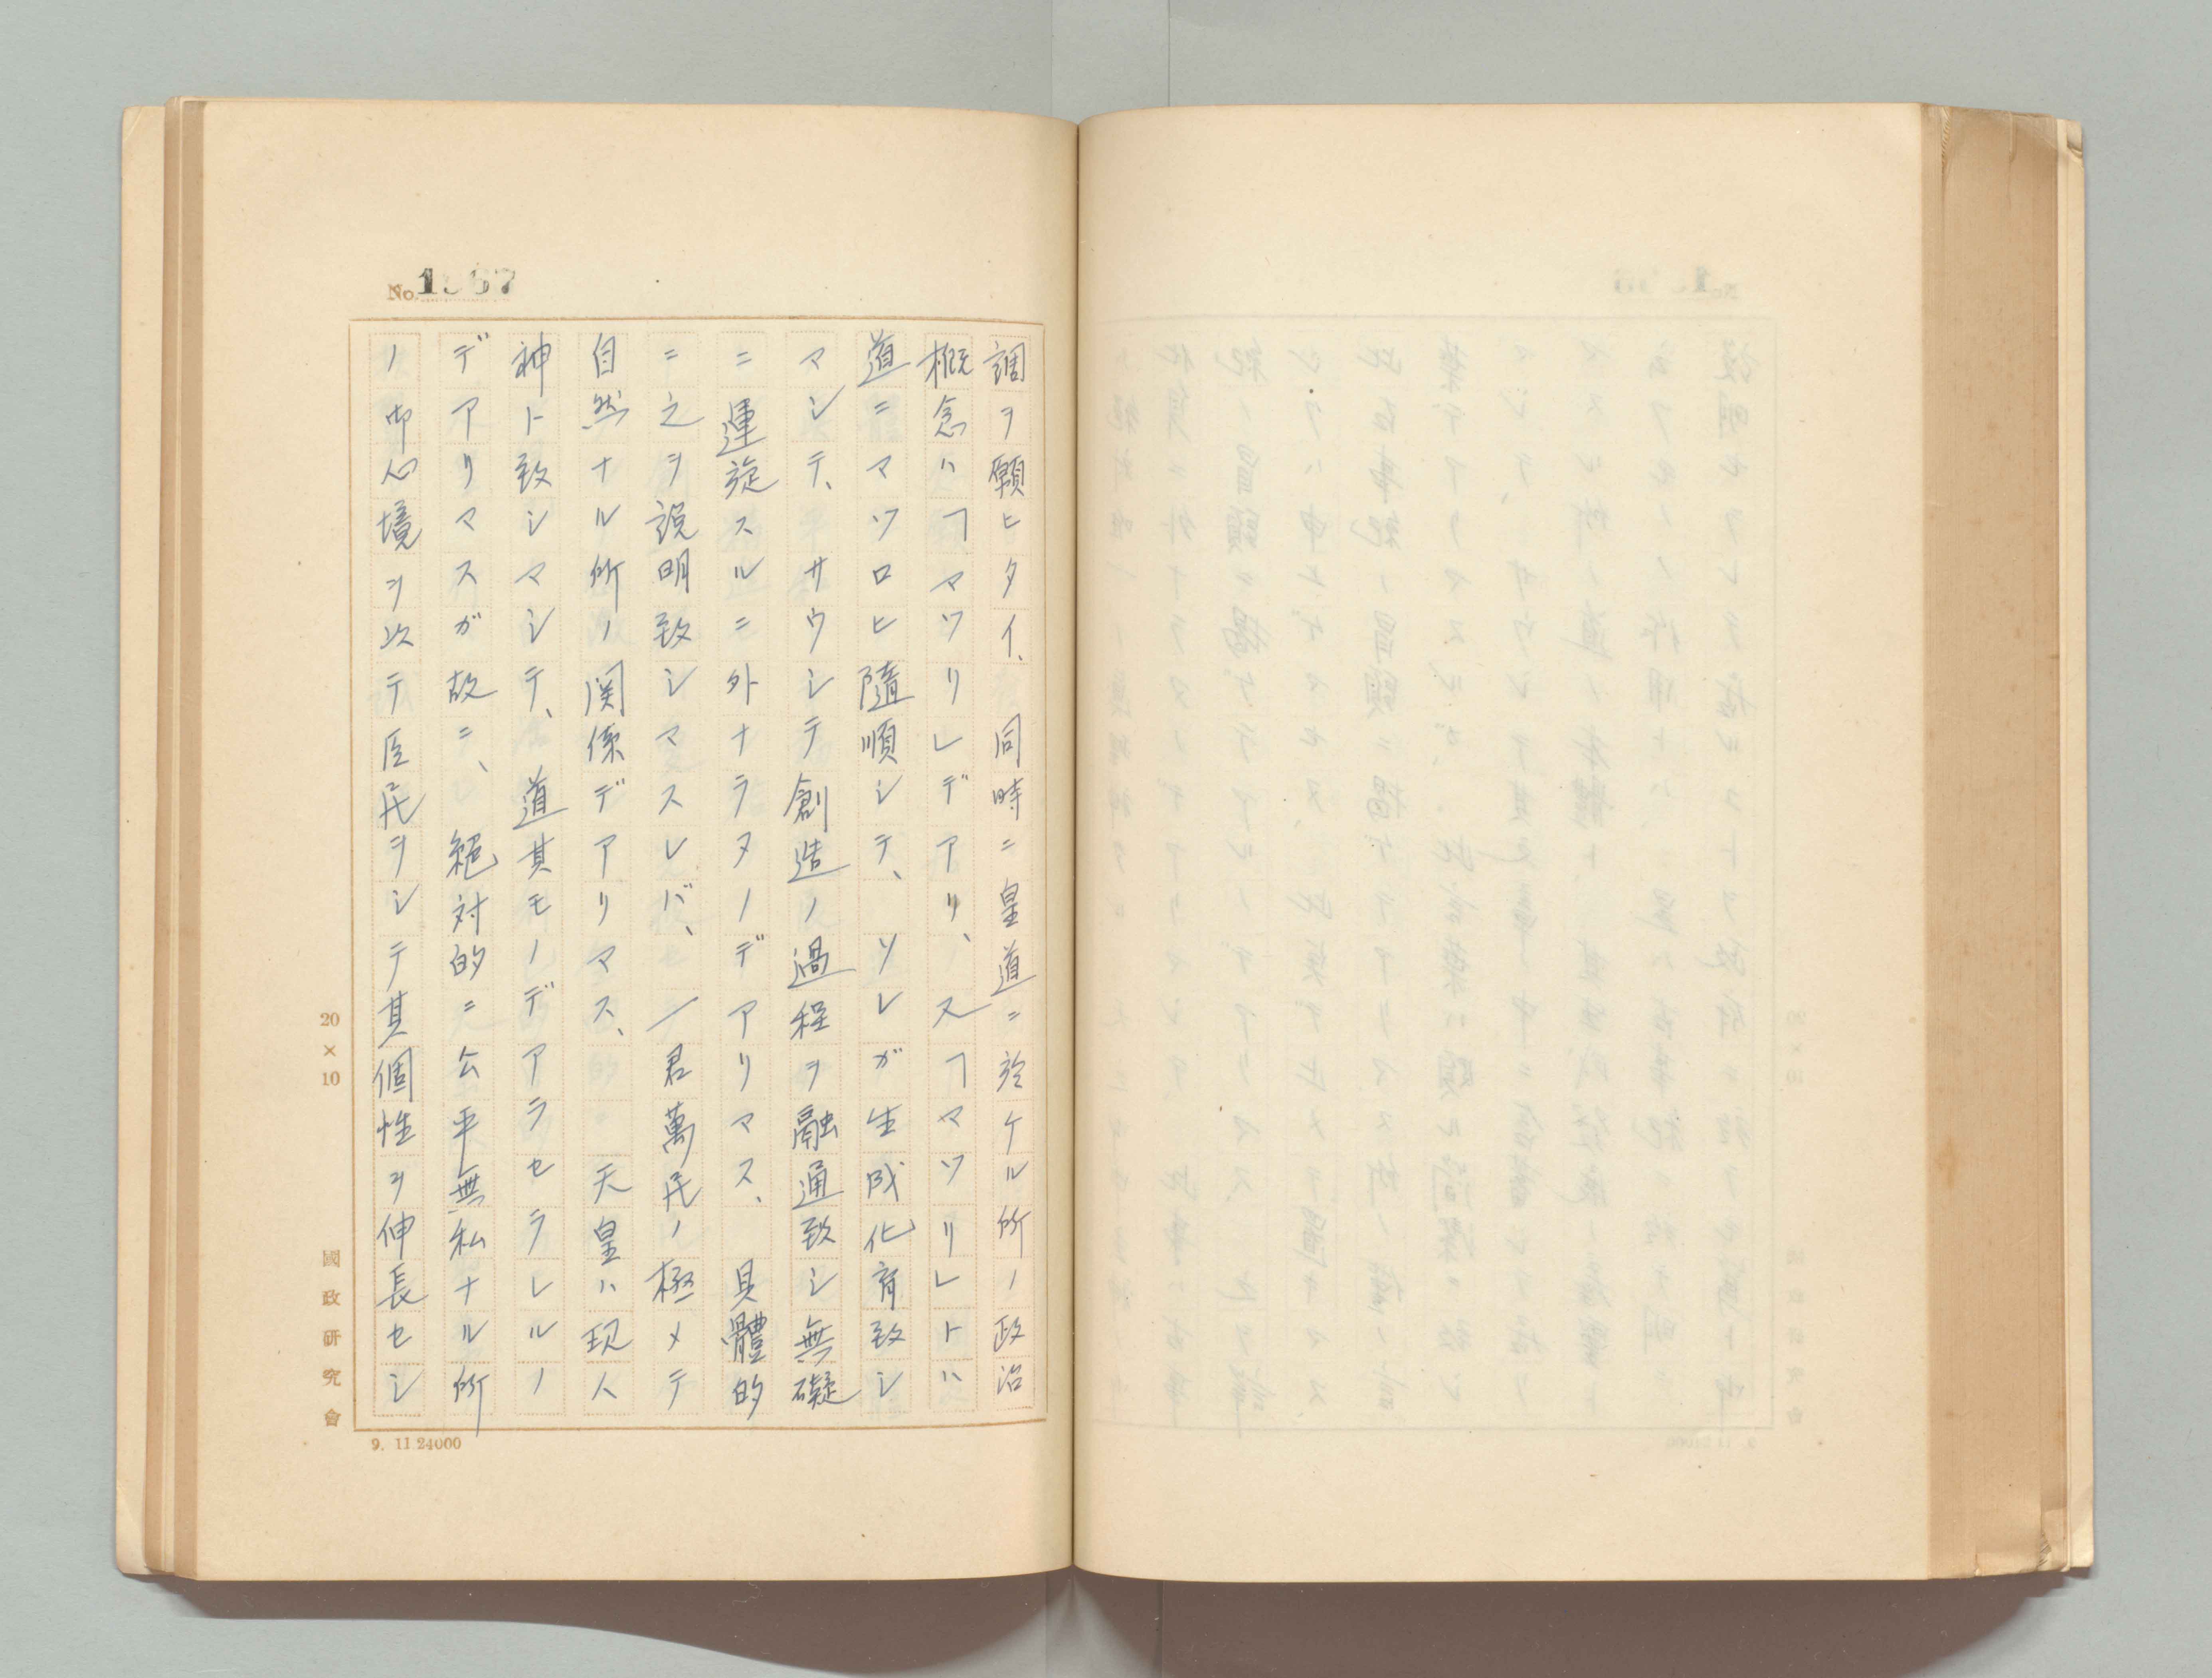 No. 1967
調ヲ願ヒタイ、同時ニ皇道ニ於ケル所ノ政治
概念ハ「マツリ」デアリ、又「マツリ」トハ
道ニマツロヒ隨順シテ、ソレガ生成化育致シ
マシテ、サウシテ創造ノ過程ヲ融通致シ無礙
ニ運旋スルニ外ナラヌノデアリマス、具體的
ニ之ヲ説明致シマスレバ、一君萬民ノ極メテ
自然ナル所ノ関係デアリマス、天皇ハ現人
神ト致シマシテ、道其モノデアラセラレルノ
デアリマスガ故ニ、絶対的ニ公平無私ナル所
ノ御心境ヲ以テ臣民ヲシテ其個性ヲ伸長セシ
20×10
國政研究會
9. 11 24000